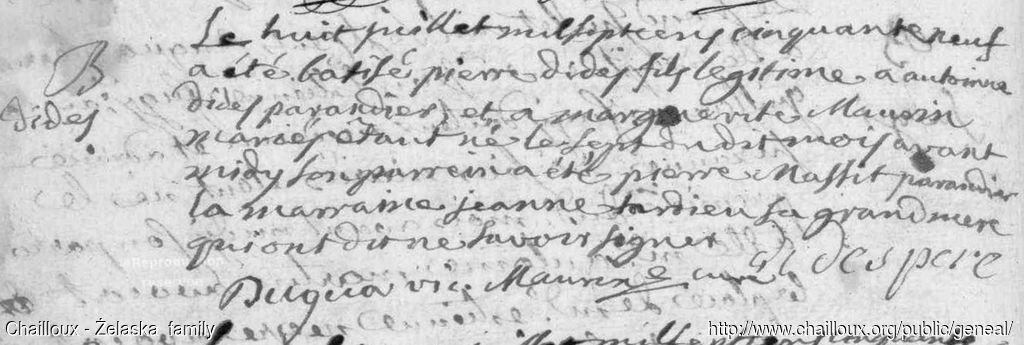 Le huit juillet mil sept cens cinquante neuf
B
a été batisé pierre dides fils legitime a antoinne
dides
dides parandier, et a marguerite Maurin
mariés étant né le sept du dit mois avant
midy son parrein a été pierre Massit parandier
la marraine jeanne tardieu sa grand mere
qui ont dit ne savoir signer
Duqua vic. Maurin curé despere
Chailloux - Żelaska family
http://www.chailloux.org/public/geneal/
© Reproduction